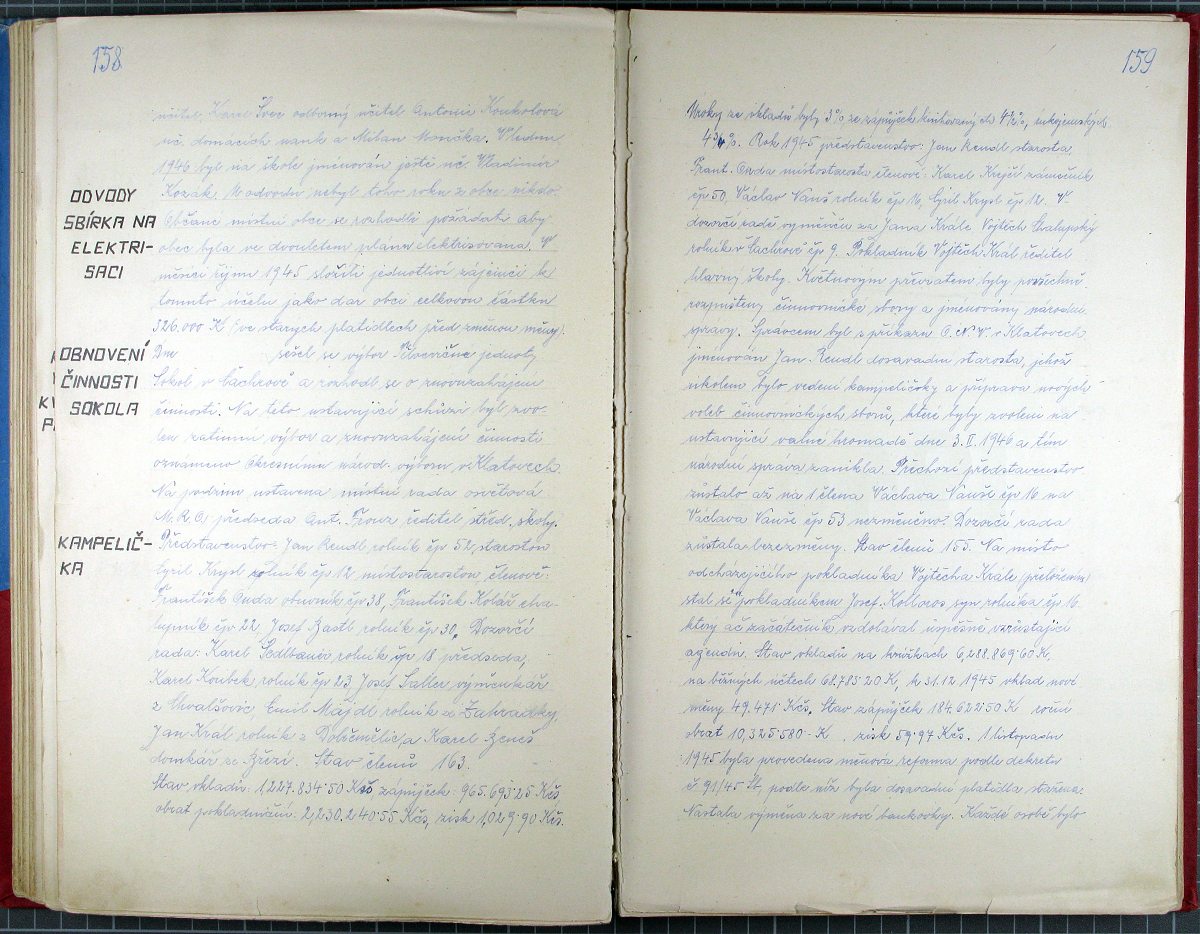 158
učitel, Karel Švec odborný učitel Antonie Koukolová
uč. domácích nauk a Milan Monička. V lednu
1946 byl na škole jmenován ještě uč. Vladimír
Kozák. U odvodu nebyl toho roku z obce nikdo.
ODVODY
SBÍRKA NA
ELEKTRI-
SACI
Občané místní obce se rozhodli požádati aby
obec byla ve dvouletém plánu elektrisována. V
měsíci říjnu 1945 složili jednotliví zájemci k
tomuto účelu jako dar obci celkovou částku
326.000 K (ve starých platidlech před změnou měny).
OBNOVENÍ
ČINNOSTI
SOKOLA
Dne sešel se výbor Tělocvičné jednoty
Sokol v Čachrově a rozhodl se o znovuzahájení
činnosti. Na této ustavující schůzi byl zvo-
len zatímní výbor a znovuzahájení činnosti
oznámeno Okresnímu národ. výboru v Klatovech.
Na podzim ustavena místní rada osvětová
M.R.O. předseda Ant. Franz ředitel střed. školy.
KAMPELIČ-
KA
Představenstvo: Jan Rendl, rolník čp 52, starostou
Cyril Krysl rolník čp 12 místostarostou členové:
František Onda obuvník čp 38, František Kolář cha-
lupník čp 22, Josef Bastl rolník čp 30. Dozorčí
rada: Karel Sedlbauer, rolník čp 18 předseda,
Karel Koubek, rolník čp 23, Josef Saller, výměnkář
z Chvalšovic, Emil Majdl rolník ze Zahrádky,
Jan Král rolník z Dobřemilic, a Karel Beneš
domkář ze Březí. Stav členů 163.
Stav vkladů: 1,227.834·50 Kčs zápůjček: 965.693·25 Kčs
obrat pokladniční: 2,230.240·55 Kčs, zisk 1,029·90 Kčs.
159
Úroky ze vkladů byly 3% ze zápůjček knihovaných 4½%, rukojemských
4¾%. Rok 1945 představenstvo: Jan Rendl starosta,
Frant. Onda místostarosta členové: Karel Krejčí zámečník
čp 50, Václav Vaneš rolník čp 16, Cyril Krysl čp 12. V
dozorčí radě výměnou za Jana Krále Vojtěch Chalupský
rolník v Čachrově čp 9. Pokladník Vojtěch Král ředitel
hlavní školy. Květnovým převratem byly všechny
rozpuštěny činovnické sbory a jmenovány národní
správy. Správcem byl z příkazu O.N.V. v Klatovech
jmenován Jan Rendl dosavadní starosta, jehož
úkolem bylo vedení kampeličky a příprava nových
voleb činovnických sborů, které byly zvoleni na
ustavující valné hromadě dne 3.II.1946 a tím
národní správa zanikla. Přechozí představenstvo
zůstalo až na 1 člena Václava Vaneše čp 16 na
Václava Vaneše čp 53 nezměněno. Dozorčí rada
zůstala beze změny. Stav členů 155. Na místo
odcházejícího pokladníka Vojtěcha Krále (přeložením)
stal se pokladníkem Josef syn rolníka čp 16.
který ač začátečník vzdoboval úspěšně vzrůstající
agendu. Stav vkladů na knížkách 6,288.869·60 K,
na běžných účtech 68.785·20 K, k 31.12 1945 vklad nové
měny 49.471 Kčs. Stav zápůjček 184.622·50 K roční
obrat 10,325.580·- K. zisk 59·97 Kčs. 1 listopadu
1945 byla provedena měnová reforma podle dekretu
č 91/45 Sb, podle níž byla dosavadní platidla stažena.
Nastala výměna za nové bankovky. Každé osobě bylo